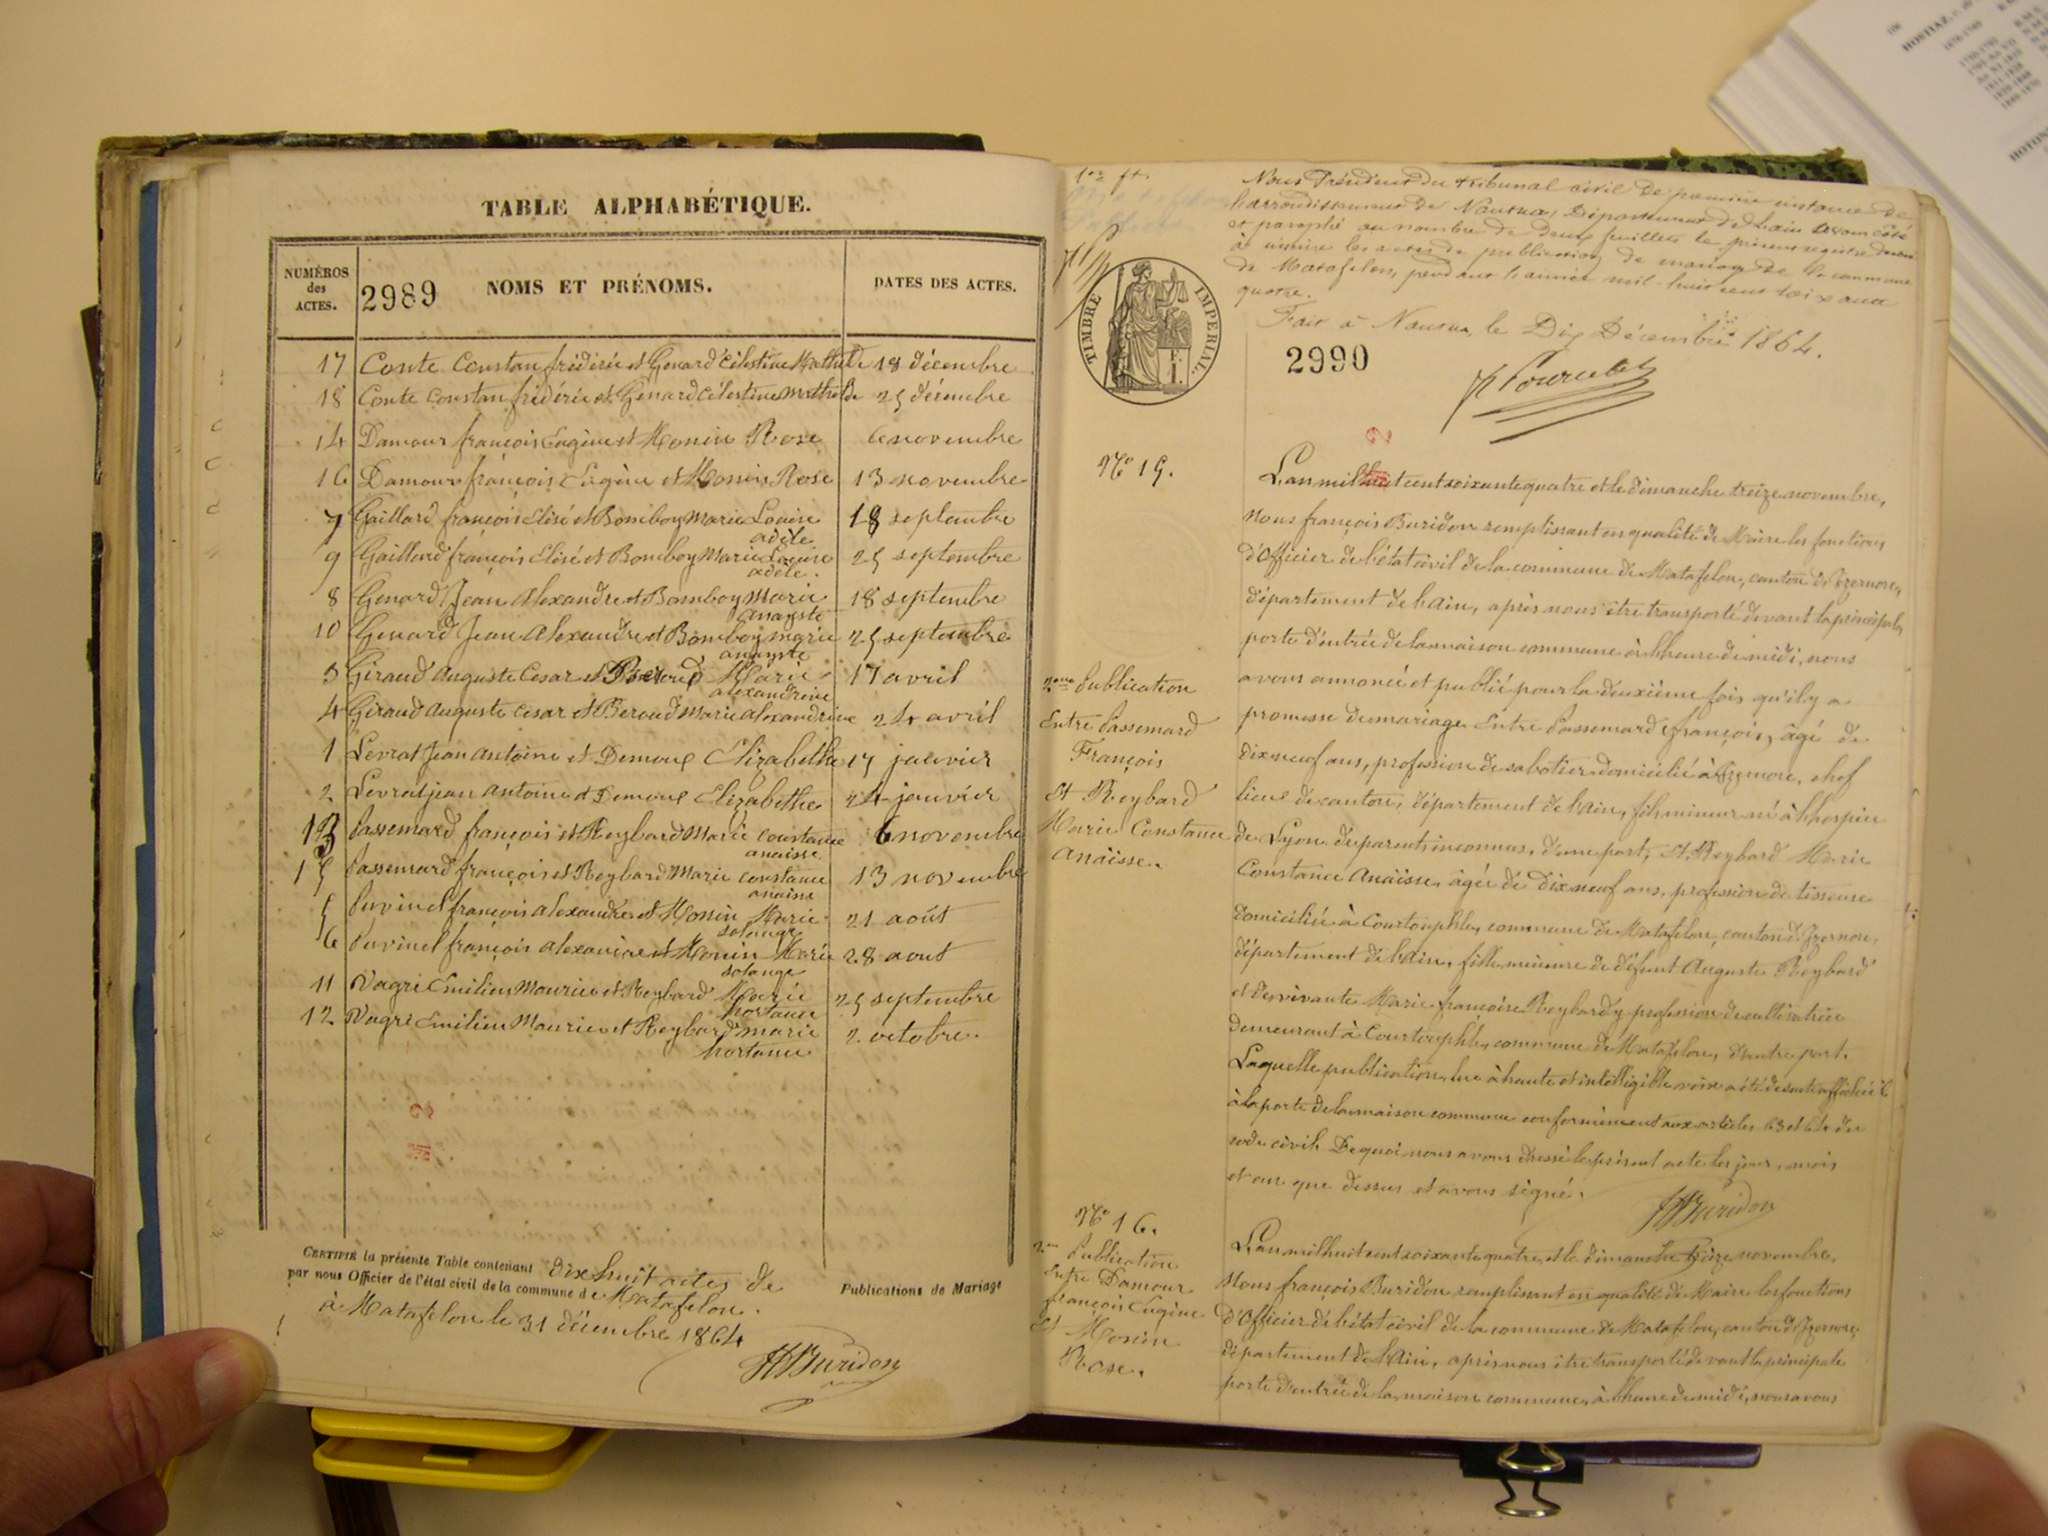 TABLE ALPHABÉTIQUE.
NUMÉROS des ACTES.
2989
NOMS ET PRÉNOMS.
DATES DES ACTES.
17 Conte Constan frédéric et Genard Célestine Mathilde 18 décembre
18 Conte Constan frédéric et Genard Célestine Mathilde 25 décembre
14 Damour françois Eugène et Monin Rose 6 novembre
16 Damour françois Eugène et Monin Rose 13 novembre
7 Gaillard françois Elisé et Bomboy Marie Louise adèle 18 septembre
9 Gaillard françois Elisé et Bomboy Marie Louise adèle. 25 septembre
8 Genard Jean Alexandre et Bomboy Marie 18 septembre
10 Genard Jean Alexandre et Bomboy marie 25 septembre
3 Giraud Auguste Cesar et Beroud Marie alexandrine 17 avril
4 Giraud Auguste Cesar et Beroud Marie alexandrine 24 avril
1 Levrat Jean Antoine et Demoux Elizabethe 17 janvier
2 Levrat jean Antoine et Demoux Elizabethe 24 janvier
13 Passemard françois et Reybard Marie constance anaisse. 6 novembre
15 Passemard françois et Reybard Marie constance anaisse 13 novembre
5 Puvinel françois alexandre et Monin Marie solange 21 août
6 Puvinel françois alexandre et Monin Marie solange 28 aout
11 Vagré Emilien Maurice et Reybard Marie hortance 25 septembre
12 Vagré Emilien Maurice et Reybard marie hortance 2 octobre.
CERTIFIÉ la présente Table contenant dix huit actes de Publications de Mariage
par nous Officier de l'état civil de la commune de Matafelon.
à Matafelon le 31 décembre 1864
Buridon
1er ft.
Nous Président du tribunal civil de première instance de
l'arrondissement de Nantua, Département de l'ain avons côté
et paraphé au nombre de deux feuillets le présent registre
à inscrire les actes de publication de mariage de la commune
de Matafelon, pendant l'année mil-huit cent soixante
quatre.
Fait à Nantua, le Dix Décembre 1864.
TIMBRE IMPERIAL.
2990
No 15.
L'an mil huit cent soixante quatre et le dimanche treize novembre,
Nous françois Buridon remplissant en qualité de Maire les fonctions
d'Officier de l'état civil de la commune de Matafelon, canton d'Izernore,
département de l'Ain, après nous être transporté devant la principale
porte d'entrée de la maison commune à l'heure de midi, nous
avons annoncé et publié pour la deuxième fois qu'il y a
promesse de mariage Entre Passemard françois, âgé de
dix neuf ans, profession de sabotier domicilié à Izernore, chef
lieu de canton, département de l'ain, fils mineur né à l'hospice
de Lyon de parents inconnus, d'une part, Et Reybard Marie
Constance Anaïsse, âgée de dix neuf ans, profession de tisseuse
domiciliée à Courtouphle, commune de Matafelon, canton d'Izernore,
département de l'Ain, fille mineure de défunt Auguste Reybard
et de vivante Marie françoise Reybard, profession de cultivatrice
demeurant à Courtouphle, commune de Matafelon, d'autre part.
Laquelle publication, lue à haute et intelligible voix a été de suite affichée
à la porte de la maison commune conformément aux articles 63 et 64 du
code civil. De quoi nous avons dressé le présent acte les jour, mois
et an que dessus et avons signé.
Buridon
2ème Publication
Entre Passemard
François
Et Reybard
Marie Constance
Anäisse.
No 16.
2me Publication
Entre Damour
françois Eugène
Et Monin
Rose.
L'an mil huit cent soixante quatre, et le dimanche treize novembre,
Nous françois Buridon remplissant en qualité de Maire les fonctions
d'Officier de l'état civil de la commune de Matafelon, canton d'Izernore,
département de l'Ain, après nous être transporté devant la principale
porte d'entrée de la maison commune, à l'heure de midi, nous avons
HOSTIAZ